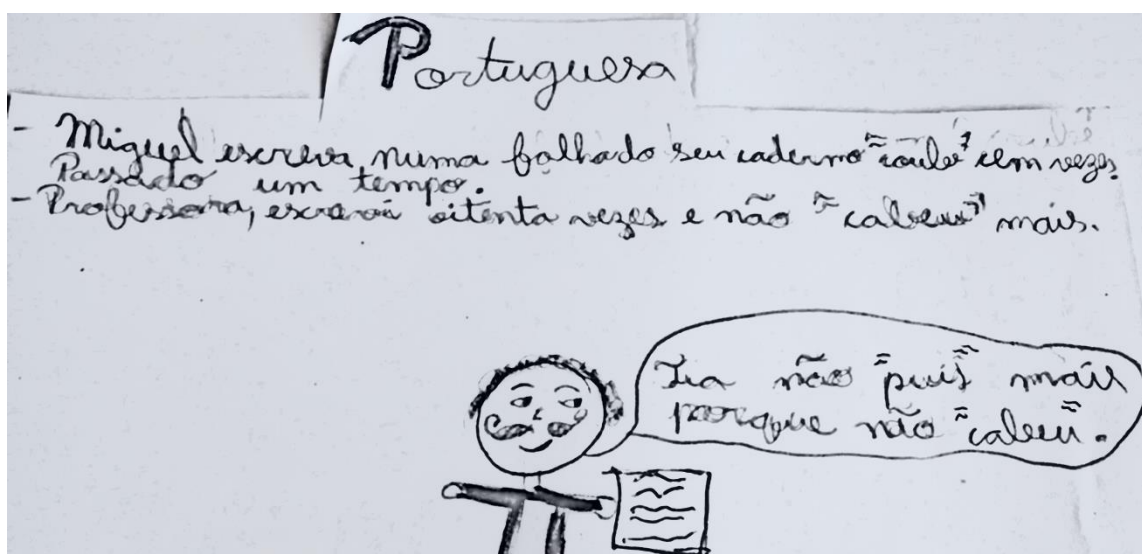 Portuguesa
- Miguel escreva numa folhado seu caderno "coube" cem vezes.
Passado um tempo.
- Professora, escrevi oitenta vezes e não "cabeu" mais.
Tia não "puis" mais
porque não "cabeu".